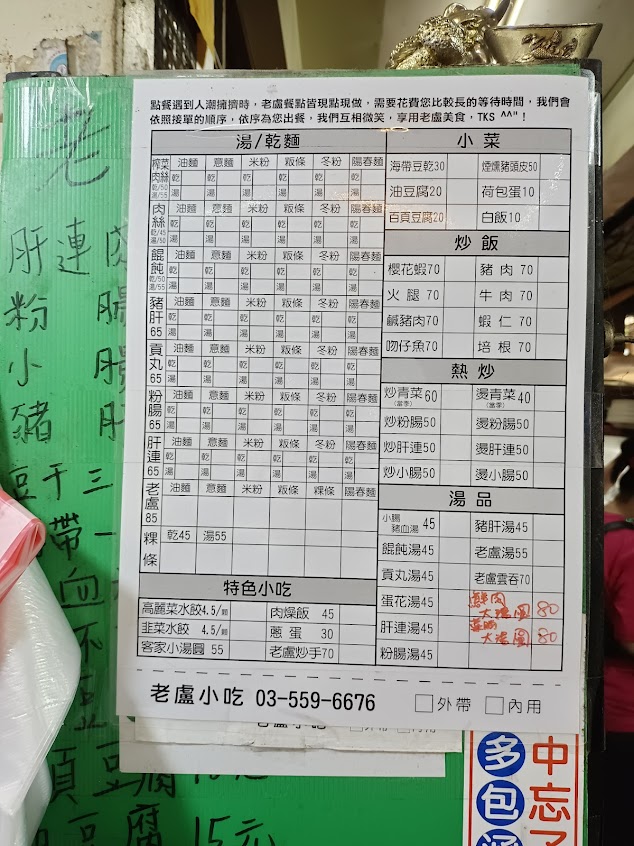 點餐遇到人潮擁擠時，老盧餐點皆現點現做，需要花費您比較長的等待時間，我們會
依照接單的順序，依序為您出餐，我們互相微笑，享用老盧美食，TKS ^^"！
湯/乾麵
榨菜肉絲 乾/50 湯/55 油麵 意麵 米粉 粄條 冬粉 陽春麵
乾 乾 乾 乾 乾 乾
湯 湯 湯 湯 湯 湯
肉絲 乾/45 湯/50 油麵 意麵 米粉 粄條 冬粉 陽春麵
乾 乾 乾 乾 乾 乾
湯 湯 湯 湯 湯 湯
餛飩 乾/50 湯/55 油麵 意麵 米粉 粄條 冬粉 陽春麵
乾 乾 乾 乾 乾 乾
湯 湯 湯 湯 湯 湯
豬肝 65 油麵 意麵 米粉 粄條 冬粉 陽春麵
乾 乾 乾 乾 乾 乾
湯 湯 湯 湯 湯 湯
貢丸 65 油麵 意麵 米粉 粄條 冬粉 陽春麵
乾 乾 乾 乾 乾 乾
湯 湯 湯 湯 湯 湯
粉腸 65 油麵 意麵 米粉 粄條 冬粉 陽春麵
乾 乾 乾 乾 乾 乾
湯 湯 湯 湯 湯 湯
肝連 65 油麵 意麵 米粉 粄條 冬粉 陽春麵
乾 乾 乾 乾 乾 乾
湯 湯 湯 湯 湯 湯
老盧 85 油麵 意麵 米粉 粄條 粿條 陽春麵
粿條 乾45 湯55
特色小吃
高麗菜水餃4.5/顆 肉燥飯 45
韭菜水餃 4.5/顆 蔥蛋 30
客家小湯圓 55 老盧炒手70
小菜
海帶豆乾30 煙燻豬頭皮50
油豆腐20 荷包蛋10
百頁豆腐20 白飯10
炒飯
櫻花蝦70 豬肉 70
火腿 70 牛肉 70
鹹豬肉70 蝦仁 70
吻仔魚70 培根 70
熱炒
炒青菜60 (當季) 燙青菜40 (當季)
炒粉腸50 燙粉腸50
炒肝連50 燙肝連50
炒小腸50 燙小腸50
湯品
小腸豬血湯 45 豬肝湯45
餛飩湯45 老盧湯55
貢丸湯45 老盧雲吞70
蛋花湯45 鮮肉大湯圓 80
肝連湯45 大湯圓 80
粉腸湯45
老盧小吃 03-559-6676 □外帶 □內用
老
肝連肉
粉腸
小腸
豬肝
豆干三
帶一
血
豆
頁豆腐
豆腐 15元
多包
中忘了